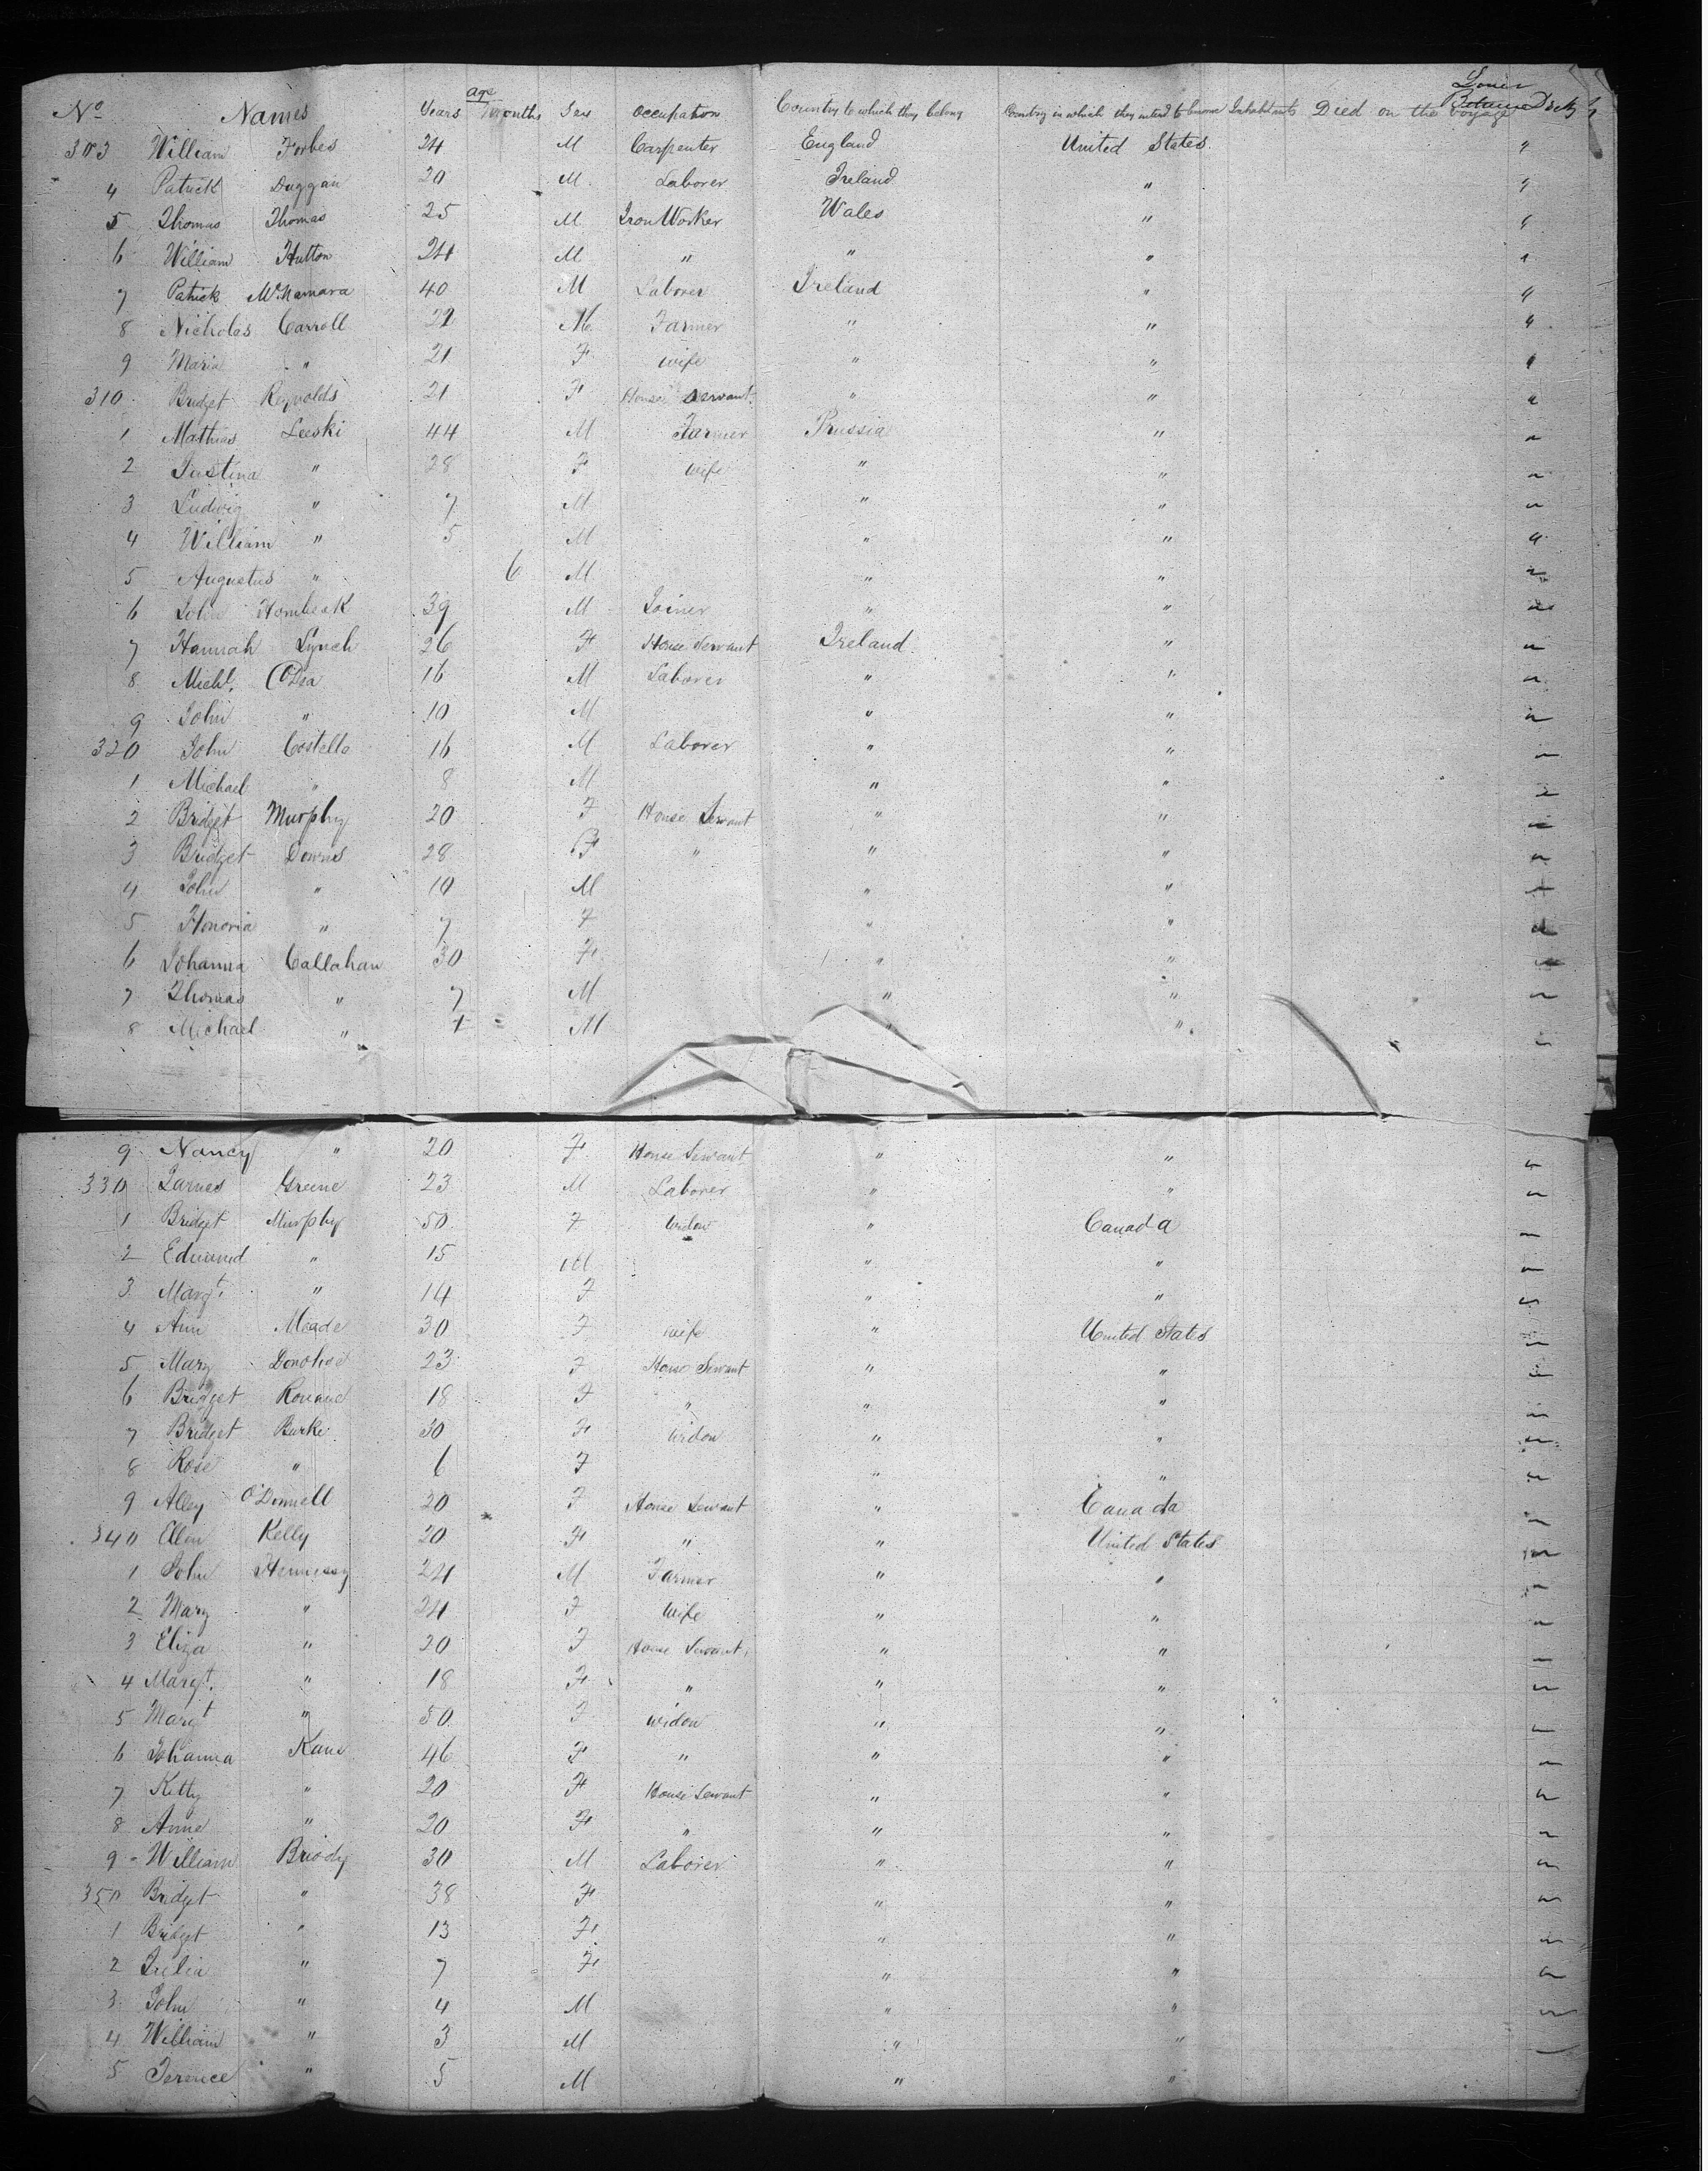 age Lower
No Names Years Months Sex Occupation Country to which they belong Country in which they intend to become Inhabitants Died on the Voyage Between Decks
303 William Forbes 24 M Carpenter England United States "
4 Patrick Duggan 20 M Laborer Ireland " "
5 Thomas Thomas 25 M Iron Worker Wales " "
6 William Hutton 24 M " " " "
7 Patrick McNamara 40 M Laborer Ireland " "
8 Nicholas Carroll 22 M Farmer " " "
9 Maria " 21 F wife " " "
310 Bridget Reynolds 21 F House Servant " " "
1 Mathias Leeski 44 M Farmer Prussia " "
2 Justina " 28 F wife " " "
3 Ludwig " 7 M " " "
4 William " 5 M " " "
5 Augustus " 6 M " " "
6 John Hornbeak 39 M Joiner " " "
7 Hannah Lynch 26 F House Servant Ireland " "
8 Michl. O'Dea 16 M Laborer " " "
9 John " 10 M " " "
320 John Costello 16 M Laborer " " "
1 Michael " 8 M " " "
2 Bridget Murphy 20 F House Servant " " "
3 Bridget Downs 28 F " " " "
4 John " 10 M " " "
5 Honoria " 7 F " " "
6 Johanna Callahan 30 F " " "
7 Thomas " 7 M " " "
8 Michael " 4 M " " "
9 Nancy " 20 F House Servant " " "
330 James Greene 23 M Laborer " " "
1 Bridget Murphy 50 F Widow " Canada "
2 Edward " 15 M " " "
3 Margt. " 14 F " " "
4 Ann Meade 30 F wife " United States "
5 Mary Donohoe 23 F House Servant " " "
6 Bridget Rouane 18 F " " " "
7 Bridget Burke 30 F Widow " " "
8 Rose " 6 F " " "
9 Alley O'Donnell 20 F House Servant " Canada "
340 Ellen Kelly 20 F " " United States "
1 John Hennessy 24 M Farmer " " "
2 Mary " 24 F Wife " " "
3 Eliza " 20 F House Servant " " "
4 Margt. " 18 F " " " "
5 Margt " 50 F Widow " " "
6 Johanna Kane 46 F " " " "
7 Kitty " 20 F House Servant " " "
8 Anne " 20 F " " " "
9 William Briody 30 M Laborer " " "
350 Bridget " 38 F " " "
1 Bridget " 13 F " " "
2 Julia " 7 F " " "
3 John " 4 M " " "
4 William " 3 M " " "
5 Terence " 5 M " "